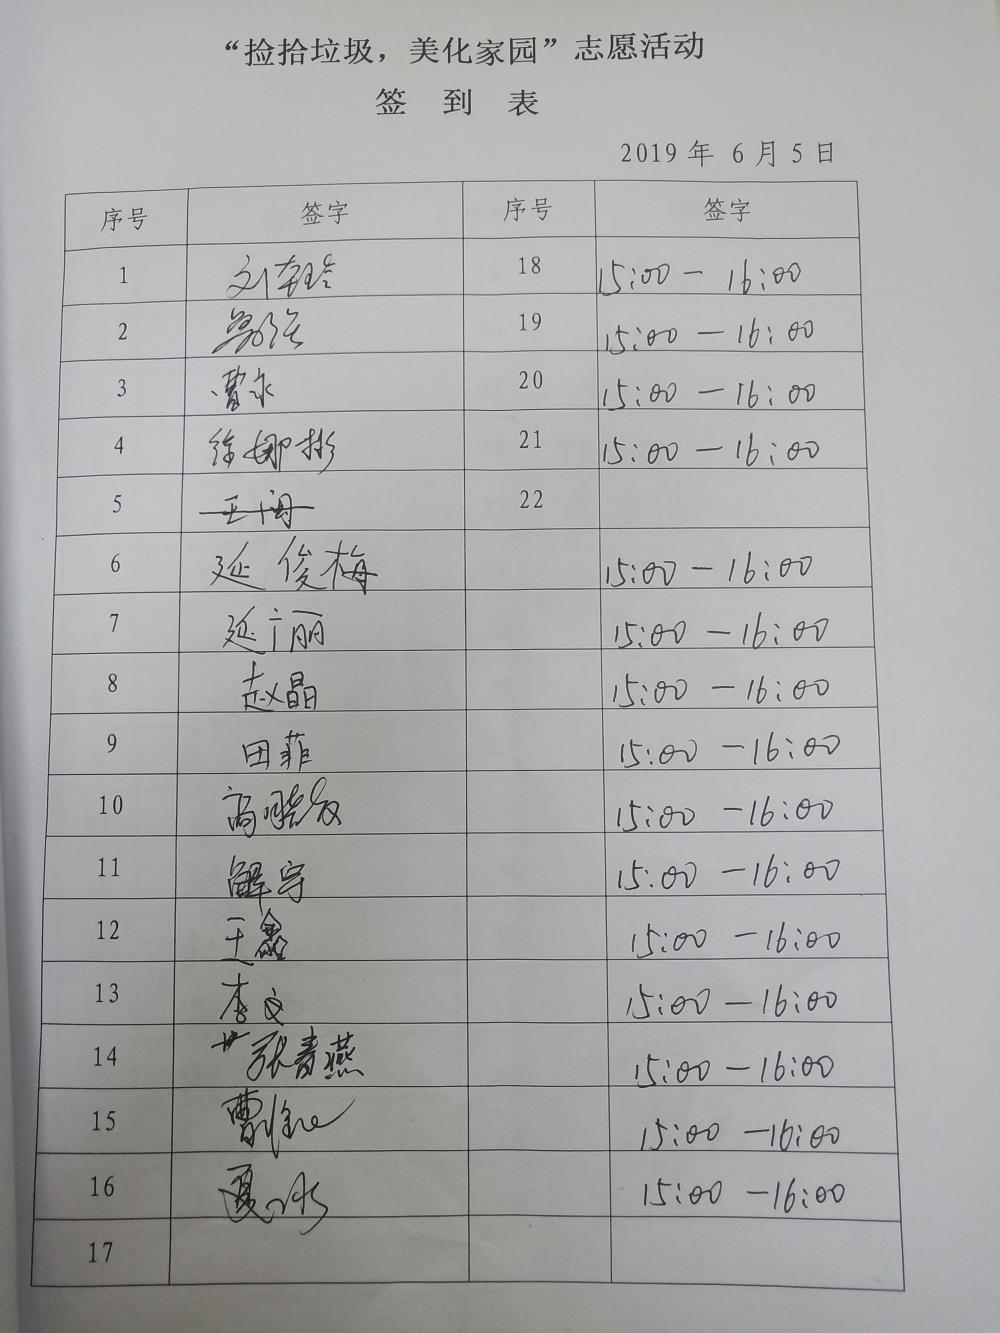 “捡拾垃圾，美化家园”志愿活动
签 到 表
2019 年 6 月 5 日
序号 签字 序号 签字
1 18 15:00 — 16:00
2 19 15:00 — 16:00
3 曹永 20 15:00 — 16:00
4 徐娜彬 21 15:00 — 16:00
5 22
6 延俊梅 15:00 — 16:00
7 延广丽 15:00 — 16:00
8 赵晶 15:00 — 16:00
9 田菲 15:00 — 16:00
10 15:00 — 16:00
11 解宇 15:00 — 16:00
12 王鑫 15:00 — 16:00
13 李文 15:00 — 16:00
14 张青燕 15:00 — 16:00
15 15:00 — 16:00
16 夏冰 15:00 — 16:00
17